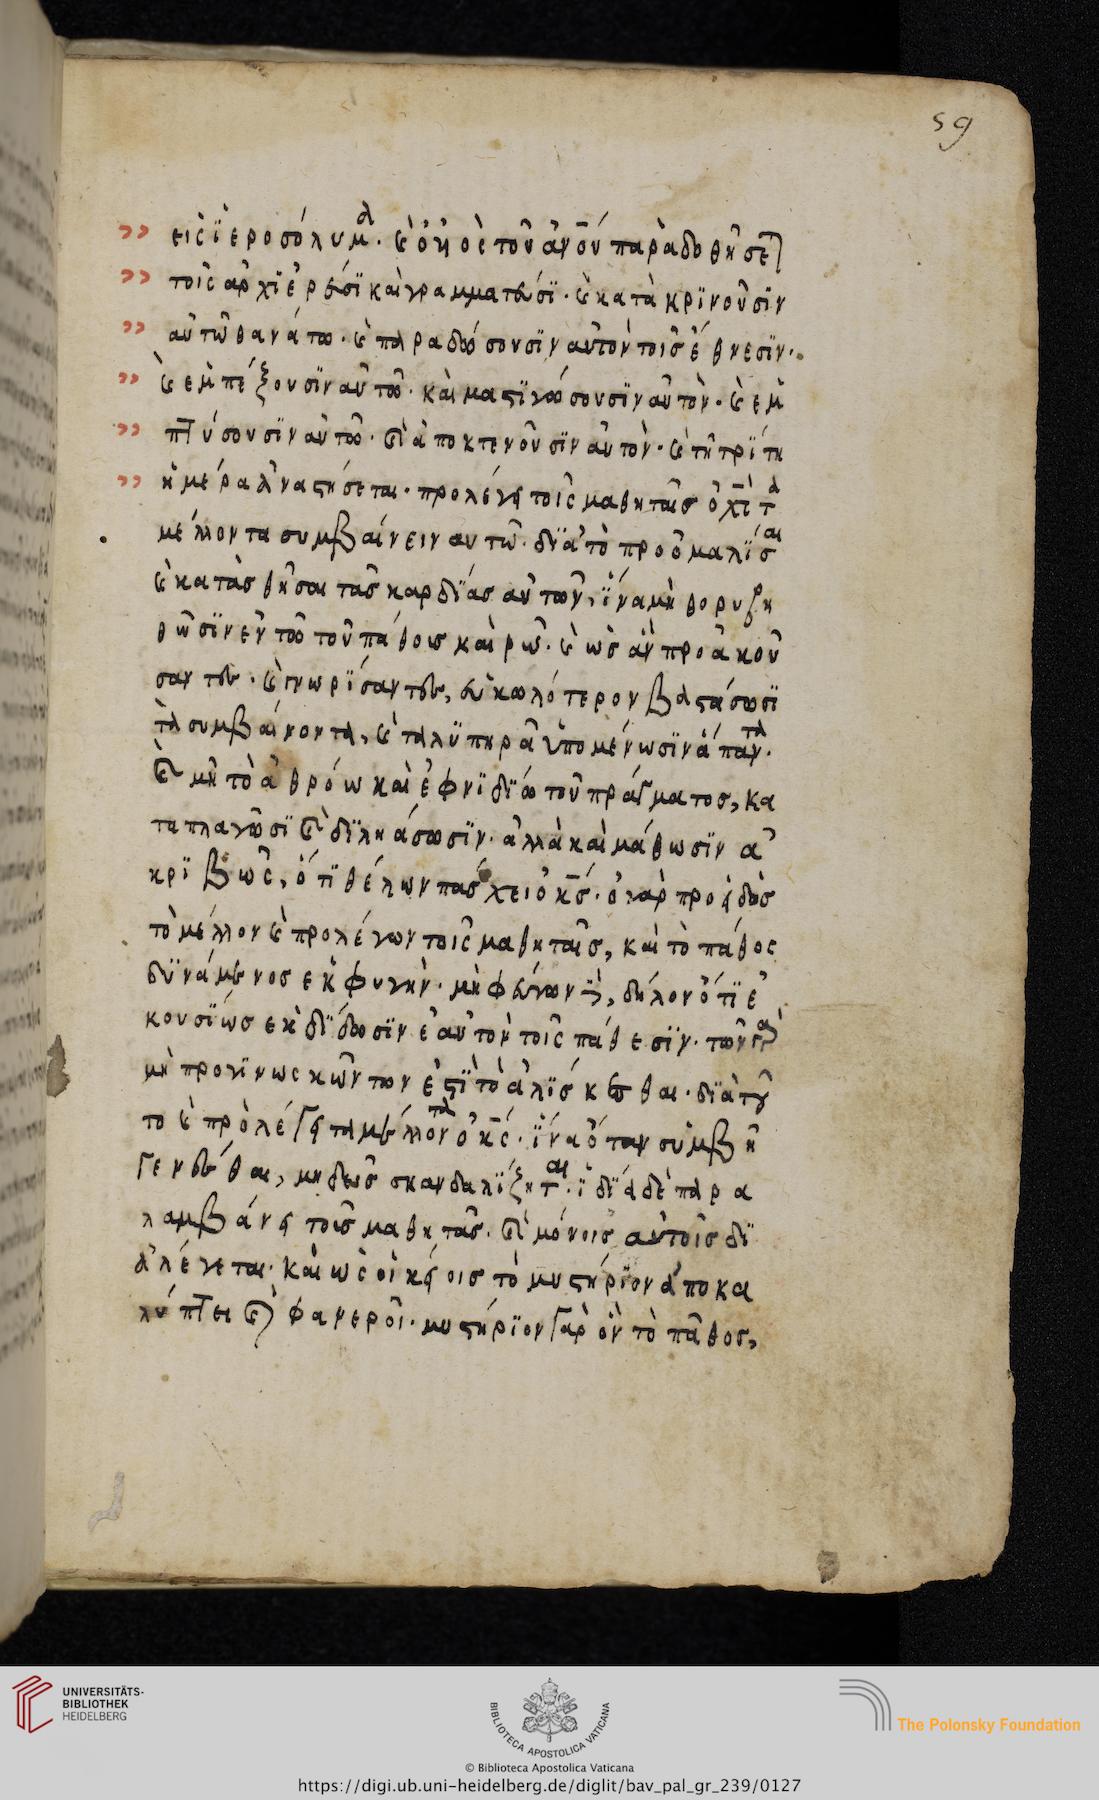 59
εἰς ἱεροσόλυμα. καὶ ὁ υἱὸς τοῦ ἀνου παραδοθήσεται
τοῖς ἀρχιερεῦσι καὶ γραμματεῦσι. καὶ κατακρινοῦσιν
αὐτῶ θανάτω. καὶ παραδώσουσιν αὐτὸν τοῖς ἔθνεσιν.
καὶ ἐμπέξουσιν αὐτῶ. καὶ μαστιγώσουσιν αὐτὸν. καὶ ἐμ
πτύσουσιν αὐτῶ. καὶ ἀποκτενοῦσιν αὐτὸν. καὶ τῆ τρίτη
ἡμέρα ἀναστήσεται. προλέγει τοῖς μαθηταῖς ὁ χς τὰ
μέλλοντα συμβαίνειν αυτῶ. διὰ τὸ προομαλίσαι
καὶ καταςθῆσαι τὰς καρδίας αὐτῶν, ἵνα μὴ θορυβη
θῶσιν ἐν τῶ τοῦ πάθους καιρῶ. καὶ ὡς ἂν προακού
σαντες. καὶ γνωρίσαντες, εὐκωλότερον βαστάσωσι
τὰ συμβαίνοντα, καὶ τὰ λυπηρὰ ὑπομένωσιν ἅπαντα.
καὶ μὴ τὸ ἀθρόω καὶ ἐφνιδίω τοῦ πράγματος, κα
ταπλαγῶσι καὶ διληάσωσιν. ἀλλὰ καὶ μάθωσιν ἀ
κριβῶς, ὅτι θέλων πάσχει ὁ κς. ὁ γὰρ προειδὼς
τὸ μέλλον καὶ προλέγων τοῖς μαθηταῖς, καὶ τὸ πάθος
δυνάμενος ἐκφυγὴν. μὴ φεύγων δὲ, δῆλον ὅτι ἑ
κουσίως ἐκδίδωσιν ἑαυτὸν τοῖς πάθεσιν. τῶν γὰρ
μὴ προγινωσκῶντων ἐστὶ τὸ ἁλίσκεσθαι. διὰ τοῦ
το καὶ πρὸλέγει τὰ μέλλοντα ὁ κς. ἵνα ὅταν συμβῆ
γενέσθαι, μηδεὶς σκανδαλίζηται. ἰδία δὲ παρα
λαμβάνει τοὺς μαθητὰς. καὶ μόνοις αὐτοῖς δι
αλέγεται. καὶ ὡς οἰκείοις τὸ μυστήριον ἀποκα
λύπτει καὶ φανεροῖ. μυστήριον γὰρ ὂν τὸ πάθος,
UNIVERSITÄTS-
BIBLIOTHEK
HEIDELBERG
BIBLIOTECA APOSTOLICA VATICANA
The Polonsky Foundation
© Biblioteca Apostolica Vaticana
https://digi.ub.uni-heidelberg.de/diglit/bav_pal_gr_239/0127